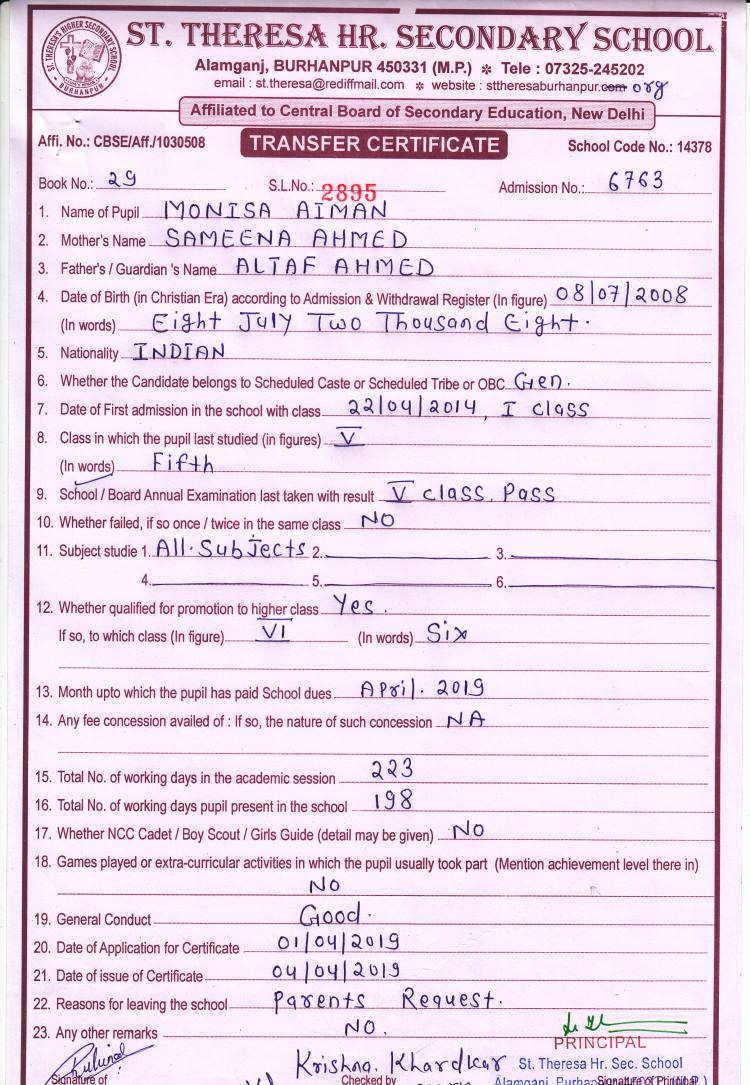 ST. THERESA'S HIGHER SECONDARY SCHOOL
BURHANPUR
ST. THERESA HR. SECONDARY SCHOOL
Alamganj, BURHANPUR 450331 (M.P.) * Tele : 07325-245202
email : st.theresa@rediffmail.com * website : sttheresaburhanpur.com org
Affiliated to Central Board of Secondary Education, New Delhi
Affi. No.: CBSE/Aff./1030508 TRANSFER CERTIFICATE School Code No.: 14378
Book No.: 29 S.L.No.: 2895 Admission No.: 6763
1. Name of Pupil MONISA AIMAN
2. Mother's Name SAMEENA AHMED
3. Father's / Guardian 's Name ALTAF AHMED
4. Date of Birth (in Christian Era) according to Admission & Withdrawal Register (In figure) 08/07/2008
(In words) Eight July Two Thousand Eight.
5. Nationality INDIAN
6. Whether the Candidate belongs to Scheduled Caste or Scheduled Tribe or OBC Gen.
7. Date of First admission in the school with class 22/04/2014, I class
8. Class in which the pupil last studied (in figures) V
(In words) Fifth
9. School / Board Annual Examination last taken with result V class. Pass
10. Whether failed, if so once / twice in the same class NO
11. Subject studie 1. All. Subjects 2. 3.
4. 5. 6.
12. Whether qualified for promotion to higher class Yes.
If so, to which class (In figure) VI (In words) Six
13. Month upto which the pupil has paid School dues April. 2019
14. Any fee concession availed of : If so, the nature of such concession NA
15. Total No. of working days in the academic session 223
16. Total No. of working days pupil present in the school 198
17. Whether NCC Cadet / Boy Scout / Girls Guide (detail may be given) NO
18. Games played or extra-curricular activities in which the pupil usually took part (Mention achievement level there in)
NO
19. General Conduct Good.
20. Date of Application for Certificate 01/04/2019
21. Date of issue of Certificate 04/04/2019
22. Reasons for leaving the school Parents Request.
23. Any other remarks NO.
PRINCIPAL
Krishna. Khardkar St. Theresa Hr. Sec. School
Signature of Checked by Alamganj, Burhanpur (M.P.) Signature of Principal